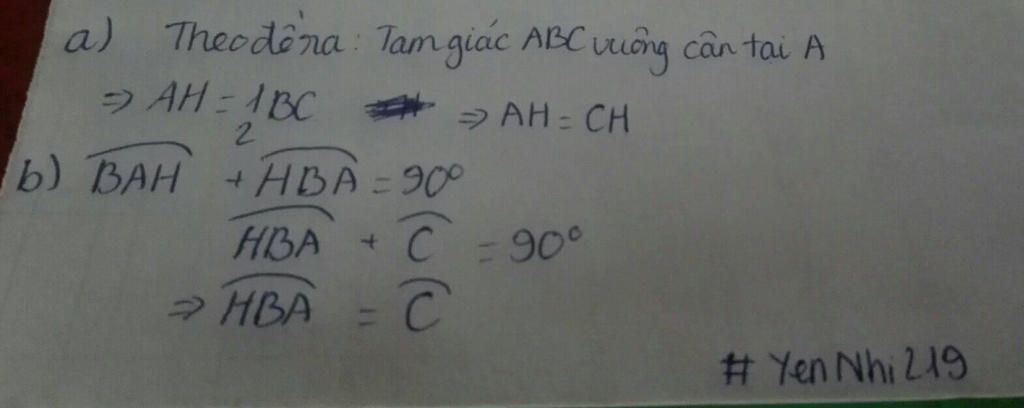 a) Theo đề ra: Tam giác ABC vuông cân tại A
⇒ AH = 1/2 BC ⇒ AH = CH
b) \widehat{BAH} + \widehat{HBA} = 90°
\widehat{HBA} + \widehat{C} = 90°
⇒ \widehat{HBA} = \widehat{C}
# YenNhi219